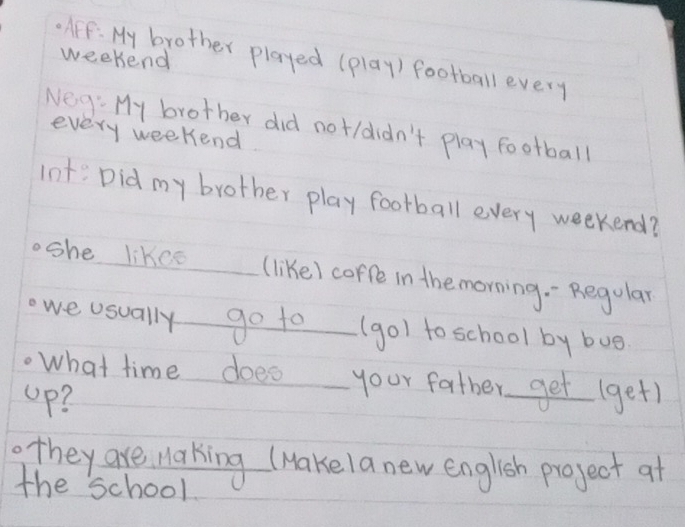 • AFF: My brother played (play) football every
weekend
Neg: My brother did not/didn't play football
every weekend
Int: Did my brother play football every weekend?
• She likes (like) coffe in the morning. - Regular
• we usually go to (go) to school by bus.
• What time does your father get (get)
up?
• They are Making (Make) a new English project at
the school.